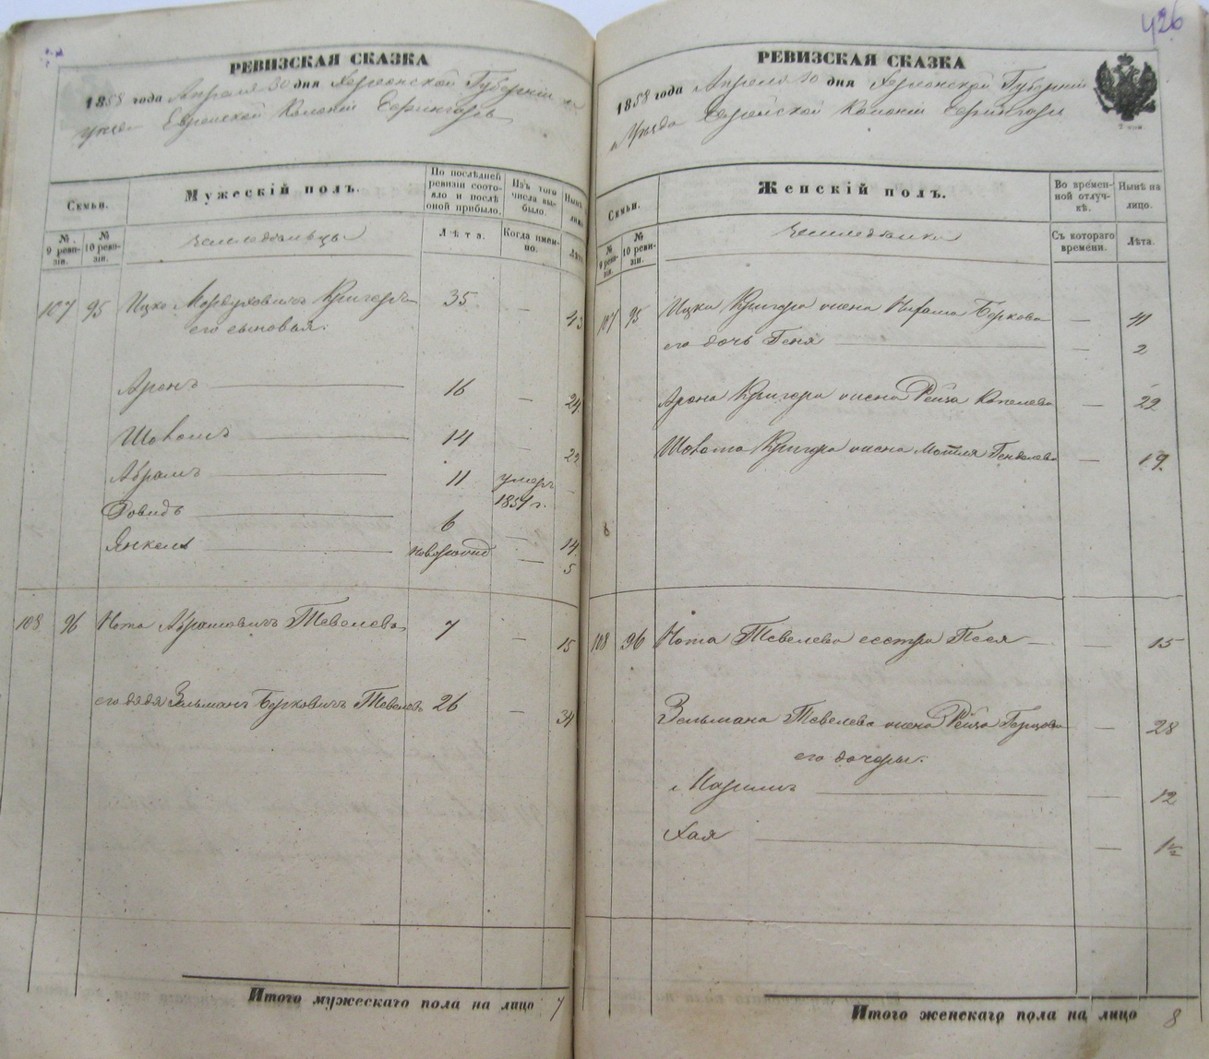 426
РЕВИЗСКАЯ СКАЗКА
1858 года Апреля 30 дня Херсонской Губернии и
Уезда Еврейской Колонии
Семьи.
№ 9 ревизіи.
№ 10 ревизіи.
Мужескій полъ.
По послѣдней ревизіи состояло и послѣ оной прибыло.
Изъ того числа выбыло.
Нынѣ на лицо.
земледѣльцы
Лѣта.
Когда именно.
Лѣта.
107 95 Ицко Мордуховичъ Кригеръ 35 — 43
его сыновья:
Аронъ 16 — 24
Шовомъ 14 — 22
Абрамъ 11 умеръ 1857 г. —
Довидъ 6 — 14
Янкель новорожд — 5
108 96 Нота Абрамовичъ Тевелевъ 7 — 15
его дядя Зельманъ Берковичъ Тевелевъ 26 — 34
Итого мужескаго пола на лицо 7
РЕВИЗСКАЯ СКАЗКА
1858 года Апреля 30 дня Херсонской Губерніи
и Уезда Еврейской Колоніи
Семьи.
№ 9 ревизіи.
№ 10 ревизіи.
Женскій полъ.
Во временной отлучкѣ.
Нынѣ на лицо.
земледѣлки
Съ котораго времени.
Лѣта.
107 95 Ицки Кригера жена Беркова — 41
его дочь Геня — 2
Арона Кригера жена Рейза — 22
Шовома Кригера жена Мотля — 19
108 96 Нота Тевелева сестра Песя — 15
Зельмана Тевелева жена Рейза Герцова — 28
его дочери:
Маримъ — 12
Хая — 1½
Итого женскаго пола на лицо 8